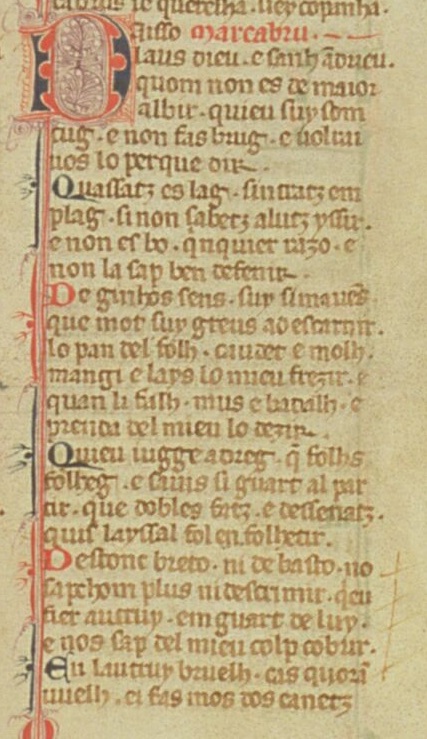 aisso marcabru.
Daus dieu. e sanh ãdrieu.
quom non es de maior
albir. quieu suy som
cug. e non fas brug. e uolrai
uos lo perque dir.
Quassatz es lag. sintratz em
plag. si non sabetz alutz yssir.
e non es bo. qnquier razo. e
non la sap ben defenir.
De ginhos sens. suy simanẽs
que mot suy greus ad escarnir.
lo pan del folh. caudet e molh.
mangi e lays lo mieu frezir. e
quan li falh. mus e badalh. e
prenda del mieu lo dezir.
Quieu iugge adreg. q̃ folhs
folheg. e sauis si guart al par
tir. que dobles fatz. e dessenatz.
quis layssal fol en folhetir.
Destonc breto. ni de basto. no
sap hom plus ni descrimir. qeu
fier autruy. em guart de luy.
e nos sap del mieu colp cobrir.
En lautruy bruelh. cas quorã
uuelh. ei fas mos dos canetz